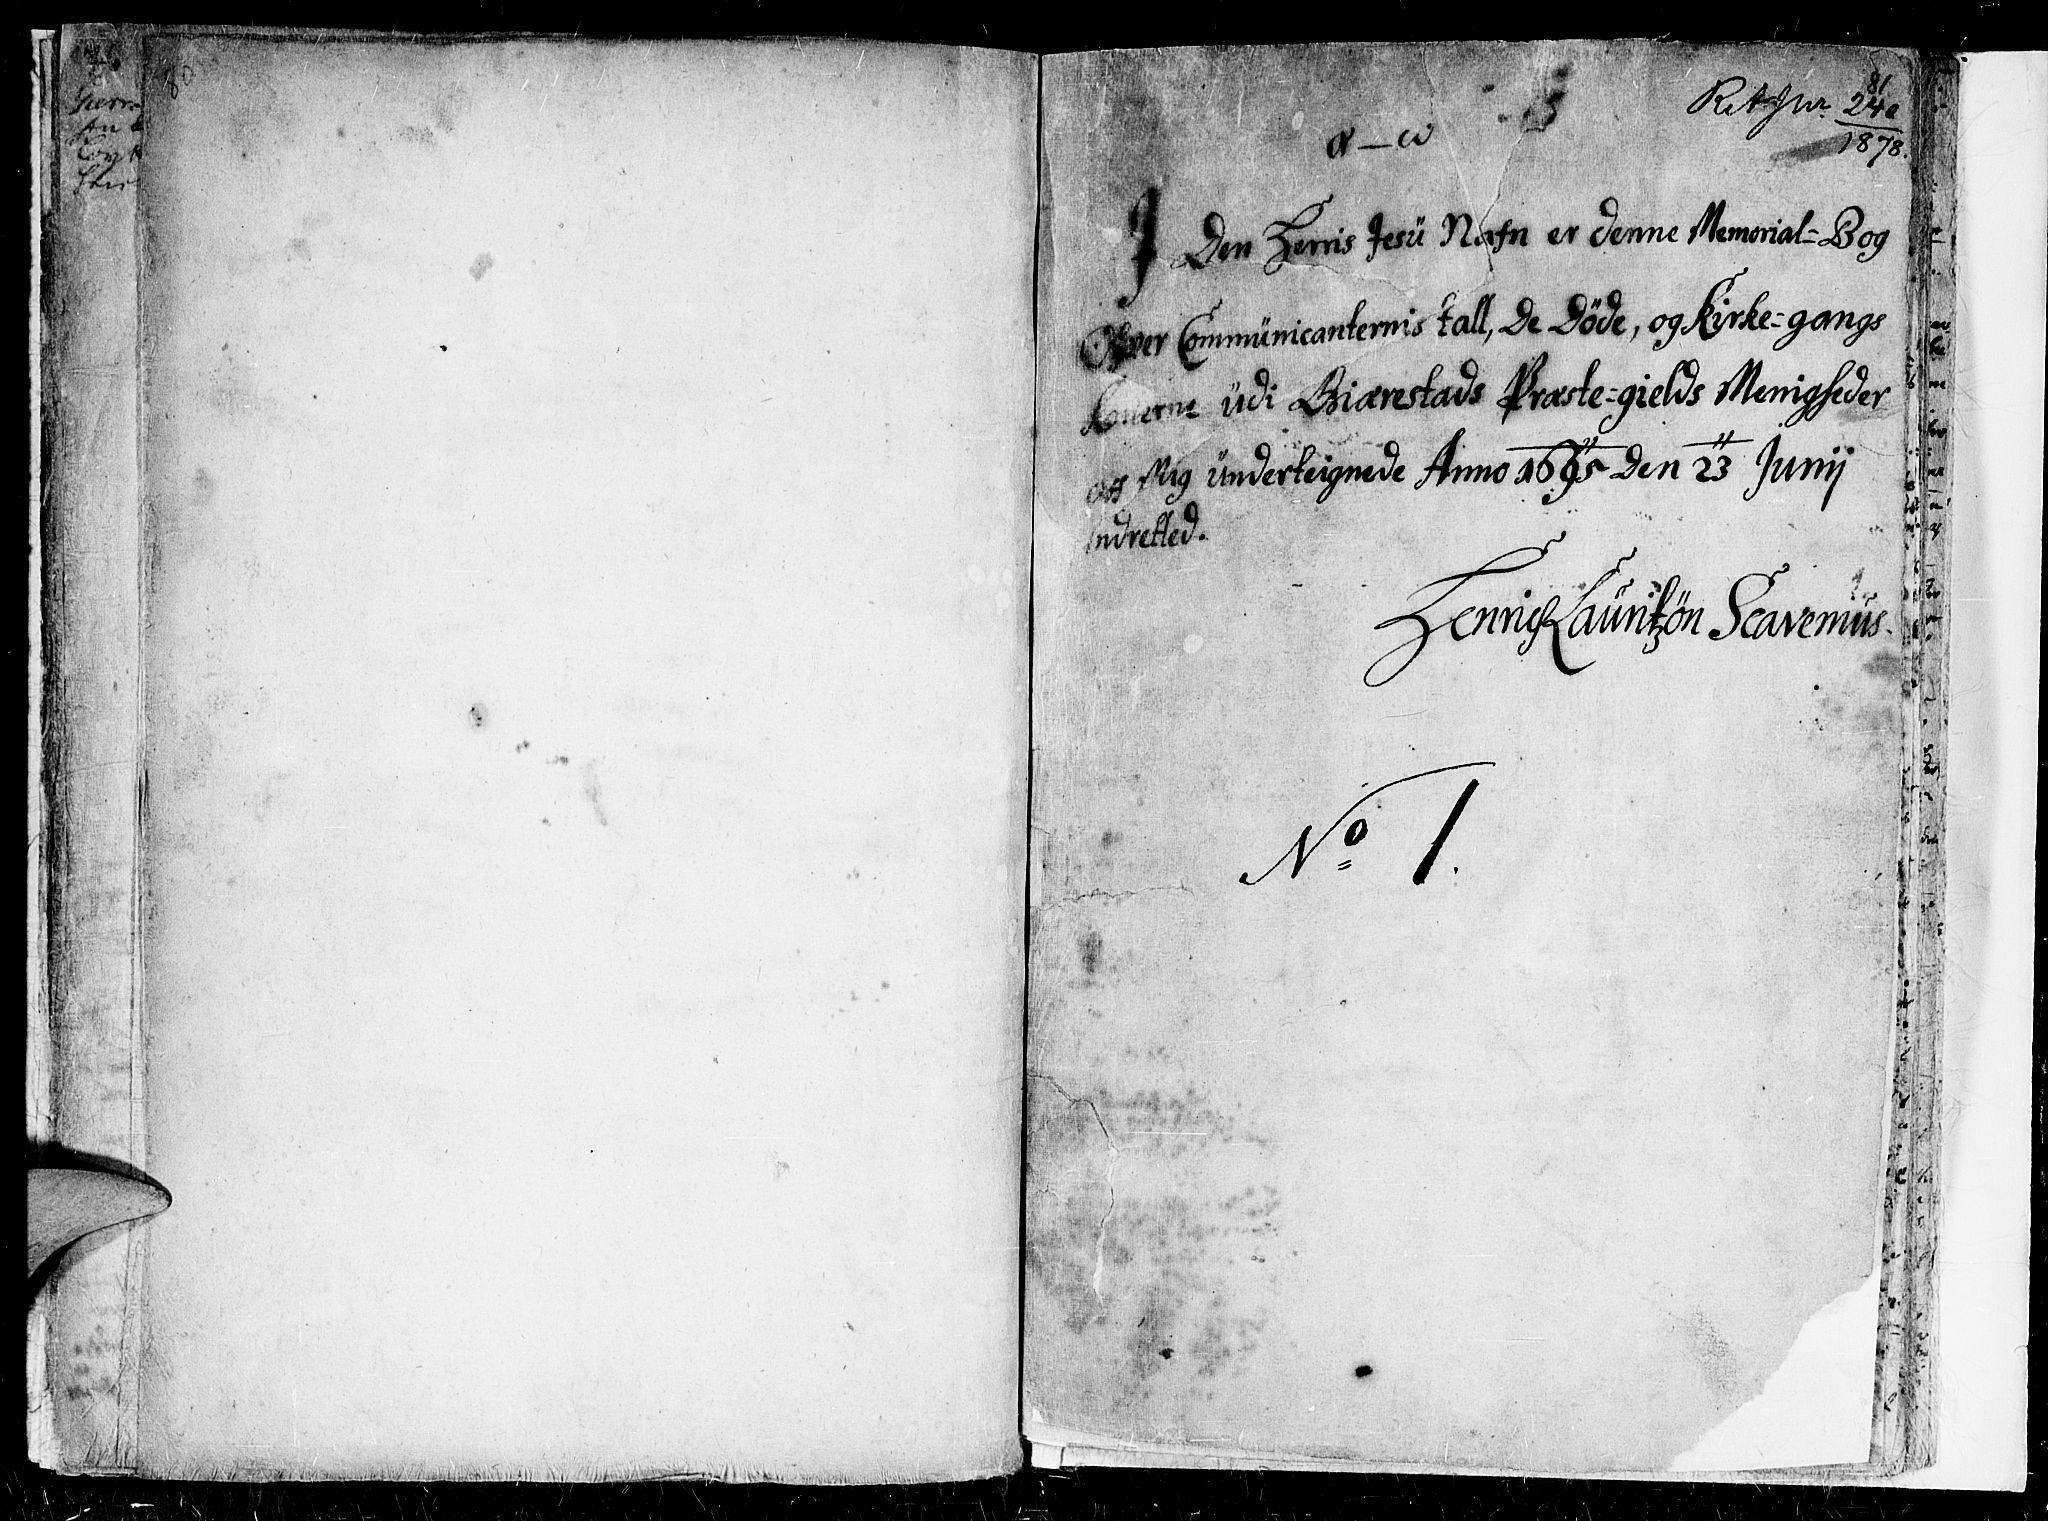 80
81
RA Jnr. 240
1878.
α — ω
I Den Herris Jesü Nafn er denne Memorial=Bog
Ofver Commünicanternis tall, De Döde, og Kirke=gangs
Konerne üdi Biærestads Præste=gields Menigheder
aff Mig ünderteignede Anno 1695 Den 23 Junij
Indretted.
Henrich Lauritzön Scavenius.
No 1.